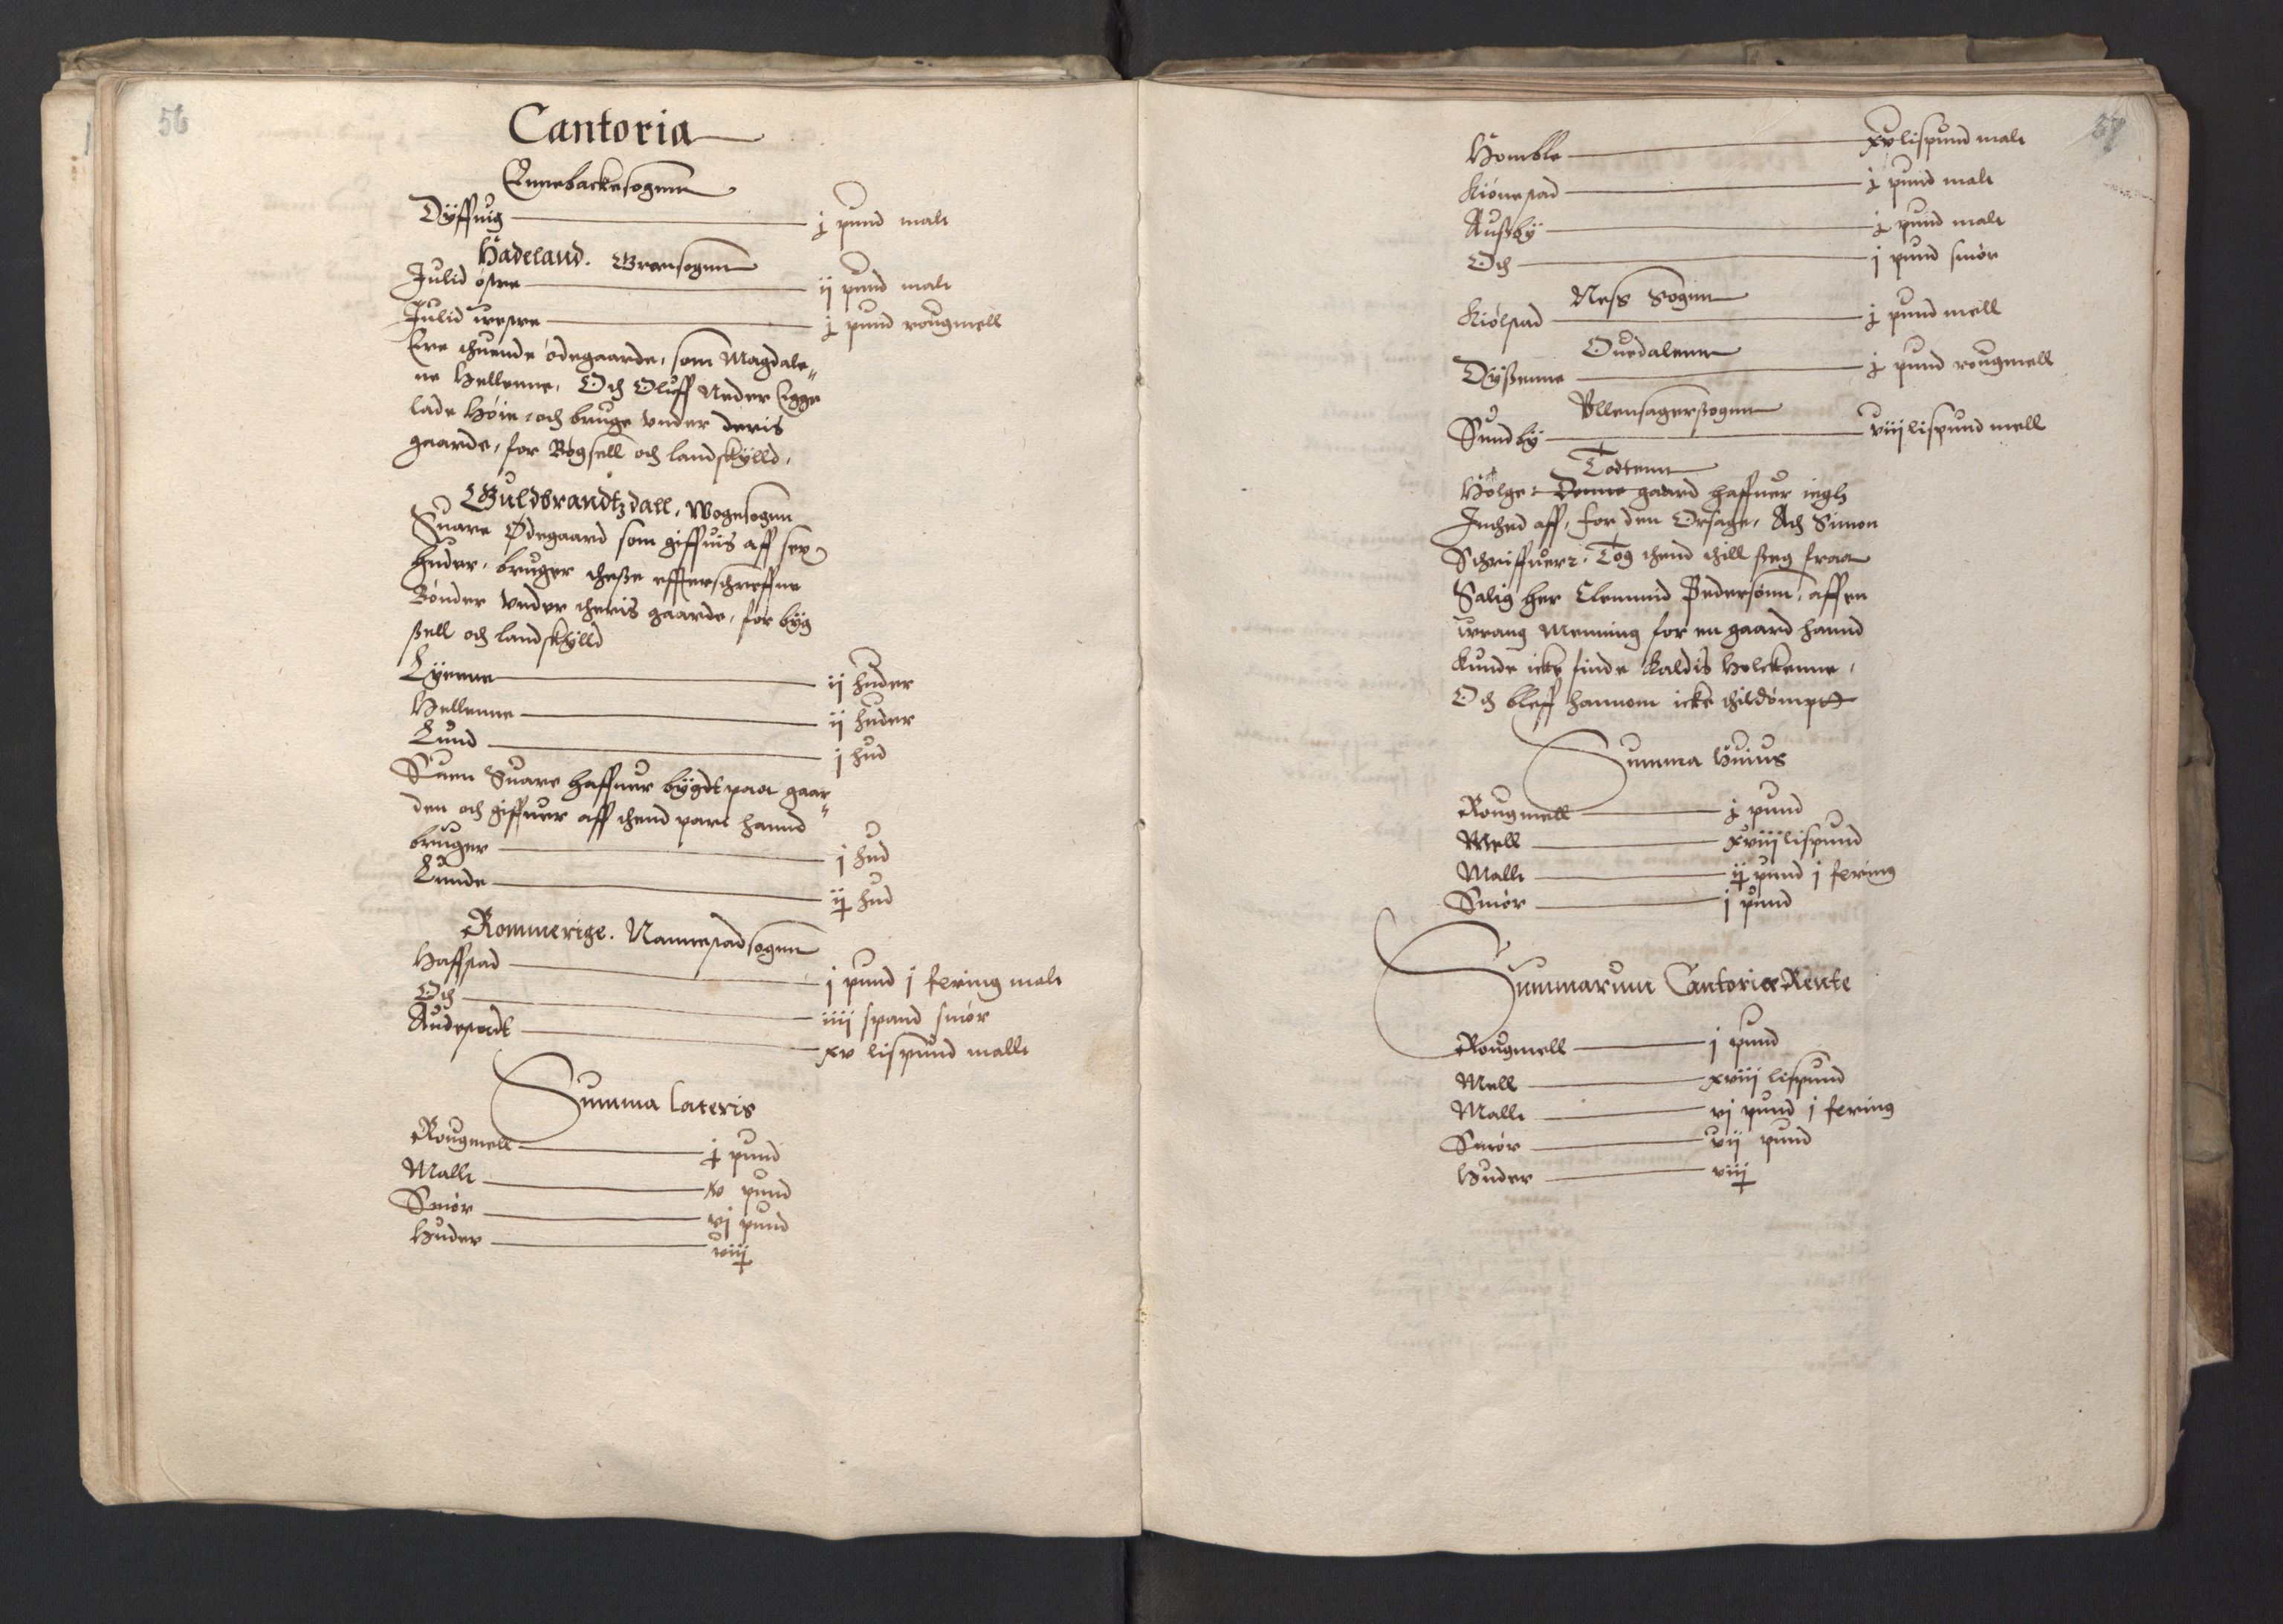 56
Cantoria
Ennebackesogenn
Dÿffuig j pund malt
Hadeland. Gransogenn
Julid østre ij pund malt
Julid westre j pund rougmell
Ere thuende ødegaarde, som Magdale„
ne Hellenne, Och Oluff Neder Egge
lade Høie och bruge vnder deris
gaarde, for Bøgsell och landskÿlld,
Guldbrandtzdall, Wogesogenn
Suare Ødegaard som giffuis aff sex
huder, bruger thesse effterschreffne
Bønder vnder theris gaarde, for bÿg
ßell och landskÿlld
Lÿenne ij huder
Hellenne ij huder
Lund j hud
Suen Suare haffuer bÿgdt paa gaar„
den och giffuer aff thend part hannd
bruger j hud
Lunde ij hud
Rommerige. Nannestadsogenn
Haffstad j pund j fering malt
Och iiij spand smør
Audestadt xv lispund mallt
Summa lateris
Rougmell j pund
Mallt iv pund
Smør vj pund
Huder viij
57
Homble xv lispund malt
Kiønstad j pund malt
Außbÿ j pund malt
Och j pund smør
Ness Sogenn
Kiølstad j pund mell
Ouedalenn
Dÿßenne j pund rougmell
Vllensagerßogenn
Sundbÿ viij lispund mell
Todtenn
Hølge: Denne gaard haffuer ieg
Inthed aff, for den Orsage, Ath Simon
Schriffuer: Tog thend thill ßeg fraa
Salig her Clemend Pedersønn, aff en
wrang Menning for en gaard hannd
kunde icke finde kaldis Holckenne,
Och bleff hannom icke thildømptt
Summa Huius
Rougmell j pund
Mell xviij lispund
Mallt ij pund j fering
Smør j pund
Summarum Cantoriæ Rente
Rougmell j pund
Mell xviij lispund
Mallt vj pund j fering
Smør vij pund
Huder viij